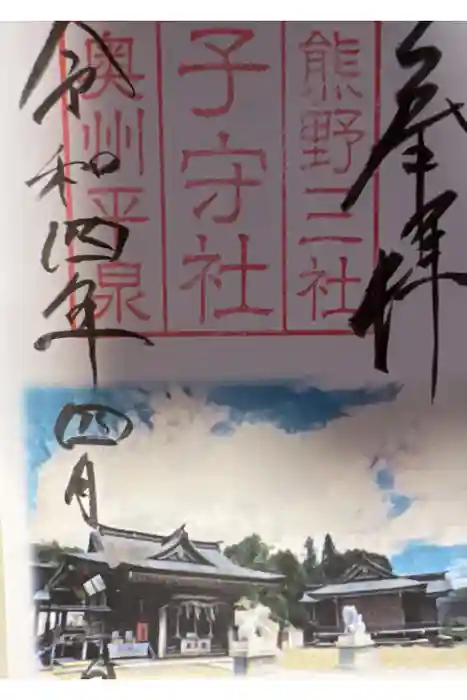 奉拝
熊野三社
子守社
奥州平泉
令和四年四月